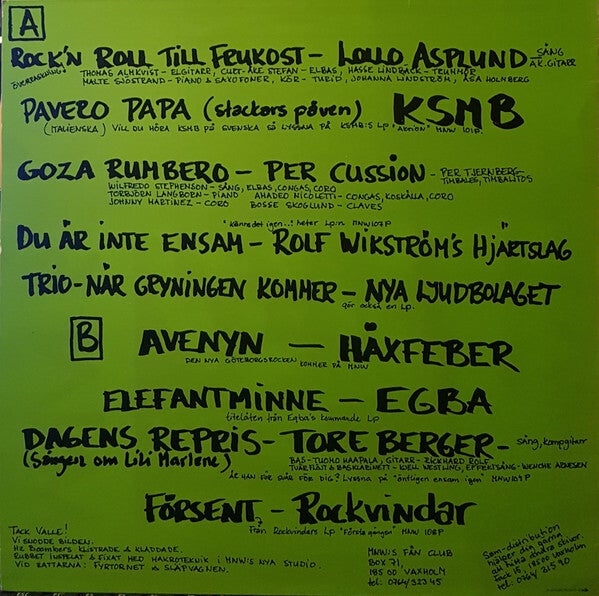 A
ROCK'N ROLL TILL FRUKOST - LOLLO ASPLUND - SÅNG AK. GITARR
ÖVERRASKNING!
THOMAS ALMKVIST - ELGITARR, CURT-ÅKE STEFAN - ELBAS, HASSE LINDBÄCK - TRUMMOR
MALTE SJÖSTRAND - PIANO & SAXOFONER, KÖR - TURID, JOHANNA LINDSTRÖM, ÅSA HOLMBERG
PAVERO PAPA (stackars påven) KSMB
(ITALIENSKA) VILL DU HÖRA KSMB PÅ SVENSKA SÅ LYSSNA PÅ KSMB:S Lp "Aktion" MNW 101P.
GOZA RUMBERO - PER CUSSION - PER TJERNBERG-
TIMBALES, TIMBALITOS
WILFREDO STEPHENSON - SÅNG, ELBAS, CONGAS, CORO
TORBJÖRN LANGBORN - PIANO AMADEO NICOLETTI - CONGAS, KOSKÄLLA, CORO
JOHNNY MARTINEZ - CORO BOSSE SKOGLUND - CLAVES
"Känn det igen..." heter Lp:n MNW 107P
DU ÄR INTE ENSAM - ROLF WIKSTRÖM'S HJÄRTSLAG
TRIO-NÄR GRYNINGEN KOMMER - NYA LJUDBOLAGET
gör också en Lp.
B
AVENYN - HÄXFEBER
DEN NYA GÖTEBORGSROCKEN KOMMER PÅ MNW
ELEFANTMINNE - EGBA
titellåten från Egba's kommande Lp
DAGENS REPRIS - TORE BERGER - sång, kompgitarr
(Sången om Lili Marlene)
BAS - TUOMO HAAPALA, GITARR - RICKHARD ROLF
TVÄRFLÖJT & BASKLARINETT - KJELL WESTLING, EFFEKTSÅNG - WENCHE ARNESEN
ÄR HAN FÖR SVÅR FÖR DIG? Lyssna på "äntligen ensam igen" MNW 109P
FÖRSENT - Rockvindar
Från Rockvindars Lp "Första gången" MNW 108P
TACK VALLE!
VI SNODDE BILDEN.
HE BOOMBERS KLISTRADE & KLADDADE.
RUBBET INSPELAT & FIXAT MED MAKROTEKNIK I MNW:S NYA STUDIO.
VID RATTARNA: FYRTORNET & SLÄPVAGNEN.
MNW:S FÅN CLUB
BOX 71,
185 00 VAXHOLM
tel: 0764/323 45
Sam-distribution
hjälper dig gärna
att hitta andra skivor.
fack 15, 185 00 Vaxholm
tel: 0764/315 90